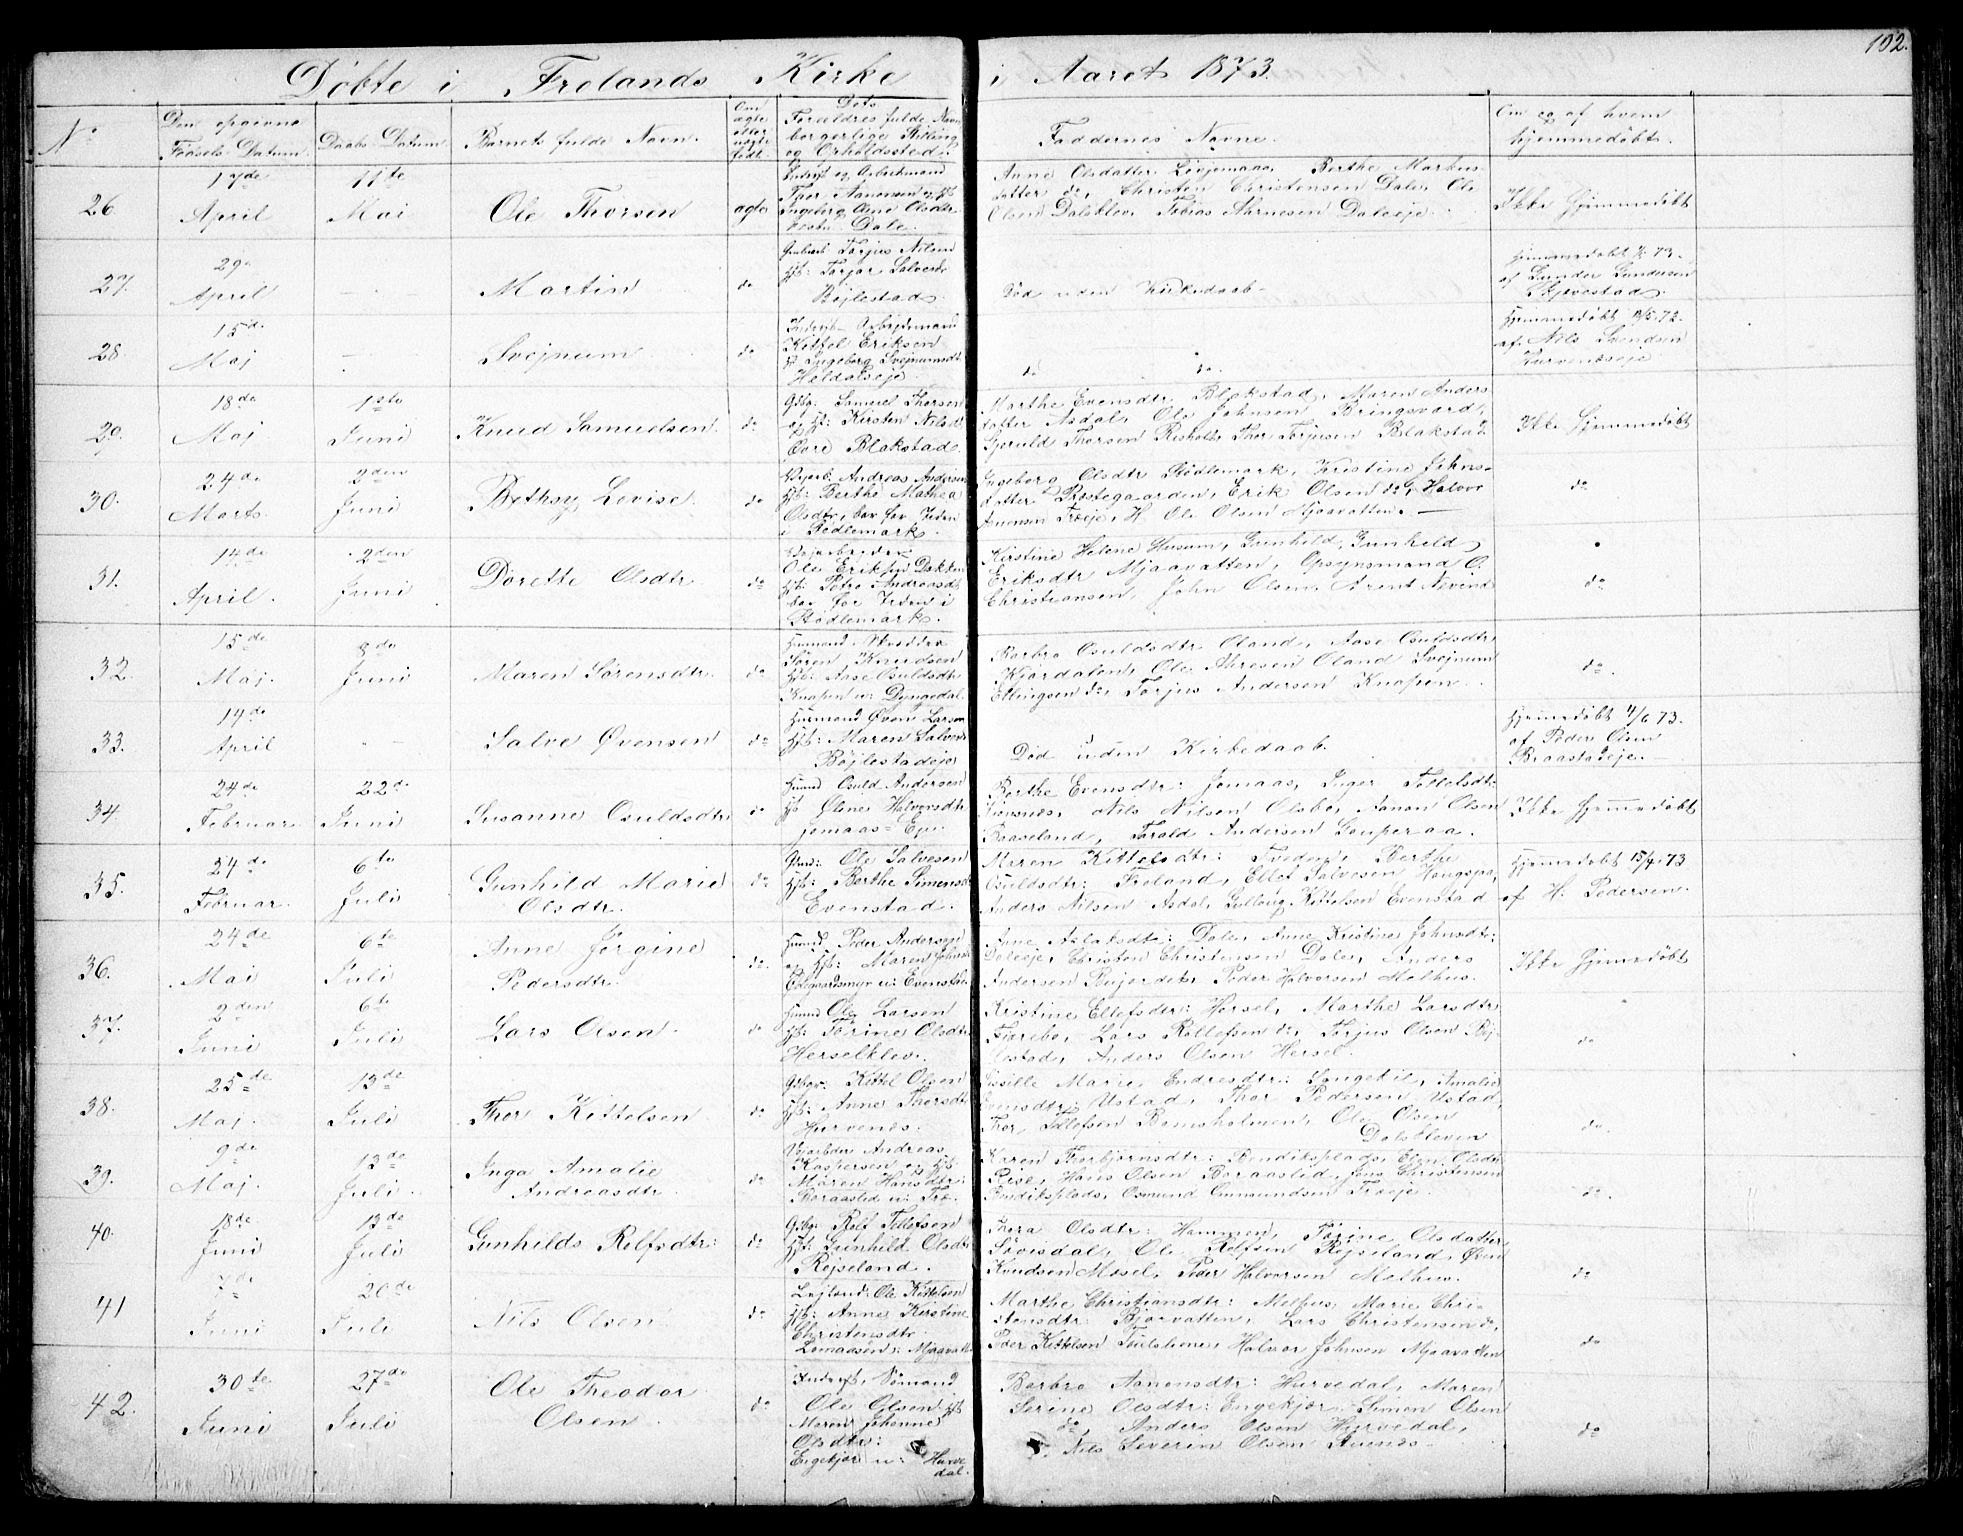 102.
Døbte i Frolands Kirke i Aaret 1873.
No
Den opgivne Fødsels-Datum.
Daabs-Datum.
Barnets fulde Navn.
Om ægte eller uægte født.
Dets Forældres fulde Navn borgerlige Stilling og Opholdssted.
Faddernes Navne.
Om og af hvem hjemmedøbt.
26.
17de April
11te Mai
Ole Thorsen
ægte
Thor Aanonsen og Hst Ingeborg Olsdtr Dale.
Anne Olsdatter Løvjomaas, Berthe Markus-
datter do, Christen Christensen Dale, Ole
Olsen Dalsklev, Tobias Daleeje.
Ikke hjemmedøbt
27.
29de April
Martin
do
Gaardb. Torjus Nilsen
Hst: Torjor Salvesdtr
Bøjlestad.
Død uden Kirkedaab.
Hjemmedøbt 73.
af Gunder Gundersen
28.
15de Maj
Svejnum
do
Indrst. Arbejdsmand
Kittel Eriksen
Ingeborg Svejnumsdtr
Heldalseje.
do do.
Hjemmedøbt
af Nils Svendsen
Hurveneseje
29.
18de Maj.
1ste Juni
Knud Samuelsen.
do
Gbg: Samuel Thorsen
og Hst: Kirsten Nilsdtr
Øvre Blakstad.
Marthe Evensdtr. Blakstad, Maren Anders-
datter Asdal, Ole Johnsen Bringsvord,
Gjeruld Thorsen Risholt, Thor Torjusen Blakstad.
Ikke Hjemmedøbt
30.
24de Marts.
2den Juni
Bethsy Lovise.
do
Andreas Andersen
Hst: Berthe Mathea
Olsdtr, bor for Tiden
i Stødlemark.
Ingeborg Olsdtr Stødlemark, Kristine Johns-
datter Røstegaarden, Erik Olsen do, Halvor
Anensen Træeje, H Ole Olsen Mjaavatten.
do
31.
14de April.
2den Juni
Dorette Olsdtr
do
Vejarbeider
Ole Eriksen
Hst: Petra Andreasdtr
bor for Tiden i
Stødlemark.
Kirstine Helene Husum, Gunhild Gunhild
Eriksdtr Mjaavatten, Opsynsmand O.
Christiansen, John Olsen, Arent
do
32.
15de Maj.
8de Juni
Maren Sørensdtr.
do
Husmand, Skrædder
Søren Knudsen
Hst: Aase Osuldsdtr
Knapen u: Dyngedal.
Barbro Osuldsdtr Oland, Aase Osuldsdtr
Kjørdalen, Ole Oland Svejnum
Ellingsen do, Torjus Andersen Knapen.
do
33.
14de April
Salve Øvensen
do
Husmand Øven Larsen
Hst: Maren Salvesdtr
Bøjlestadeje
Død uden Kirkedaab.
Hjemmedøbt 4/6 73.
af Peder Olsen
Braastadeje.
34.
24de Februar
22de Juni
Susanne Osuldsdtr
do
Husmd Osuld Andersen
Hst Olene Halvorsdtr
Jomaas-Eje.
Berthe Evensdtr: Jomaas, Inger Tellefsdtr:
Nils Nilsen Olsbo, Aanon Olsen
Baaseland, Torald Andersen Gauperaa.
Ikke hjemmedøbt
35.
24de Februar.
6te Juli
Gunhild Marie Olsdtr.
do
Ole Salvesen
Hst: Berthe Simensdtr
Evenstad.
Maren Kittelsdtr: Tveden, Berthe
Osuldsdtr: Froland, Ellef Salvesen Haugspa,
Anders Nilsen Asdal, Gullovig Kittelsen Evenstad
Hjemmedøbt 15/4 73
af H. Pedersen.
36.
24de Mai
6te Juli
Anne Jørgine Pedersdtr.
do.
Husmd Peder Andersen
og Hst: Maren Johnsdtr
u: Evenstad
Anne Aslaksdtr: Dale, Anne Kristine Johnsdtr:
Daleeje, Christen Christensen Dale, Anders
Andersen Bujordet, Peder Halvorsen Mølhus.
Ikke Hjemmedøbt
37.
2den Juni
6te Juli
Lars Olsen.
do
Husmd Ole Larsen
Hst: Torine Olsdtr
Herselklev.
Kristine Ellefsdtr: Hersel, Marthe Larsdtr
Fiorebo, Lars Rollefsen do, Torjus Olsen Bøj-
lestad, Anders Olsen Hersel.
do
38.
25de Maj.
13de Juli
Thor Kittelsen
do
Gbgr: Kittel Olsen
Hst: Anne Thorsdtr
Hurvenes.
Sissille Marie Endresdtr: Songekil, Amalie
Evensdtr: Ustad, Thor Pedersen Ustad,
Thor Tellefsen Bomsholmen, Ole Olsen
Dalskleven
do.
39.
9de Maj.
13de Juli.
Inga Amalie Andreasdtr.
do
Vejarbder Andreas
Kaspersen og Hst
Maren Hansdtr:
Boraasted u: Træ.
Karen Thorbjørnsdtr: Benditsplads, Elen Olsdtr
Rise, Hans Olsen Boraasted, Jens Christensen
Benditsplads, Osmund Gunmundsen Træeje.
do.
40.
18de Juni
13de Juli
Gunhilds Rolfsdtr:
do
Gbg: Rolf Tellefsen
Hst: Gunhild Olsdtr
Rejseland.
Thora Olsdtr: Hammen, Torine Olsdatter
Løvisdal, Ole Rolfsen Rejseland, Øven
Knudsen Mosel, Peder Halvorsen Mølhus.
do
41
7de Juni
20de Juli
Nils Olsen
do
Lejlend: Ole Kittelsen
Hst: Anne Kirstine
Christensdtr
Lomaasen u: Mjaavatt
Marthe Christiansdtr: Mølhus, Marie Chri-
stensdtr: Bjorvatten, Lars Christensen do,
Peder Kittelsen, Halvor Johnsen Mjaavatten
do
42.
30te Juni
27de Juli
Ole Theodor Olsen
do
Indrst, Sømand
Ole Olsen Hst
Maren Johanne
Olsdtr:
Engekjær u: Hurve
dal.
Berbro Aanonsdtr: Hurvedal, Maren
Serine Olsdtr: Engekjær, Simon Olsen
do, Anders Olsen Hurvedal,
Nils Severin Olsen
do